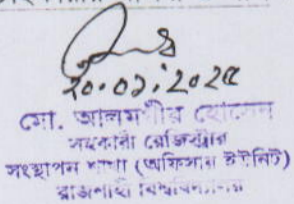 ২০.০১.২০২৫
মো. আলমগীর হোসেন
সহকারী রেজিস্ট্রার
সংস্থাপন শাখা (অফিসার ইউনিট)
রাজশাহী বিশ্ববিদ্যালয়